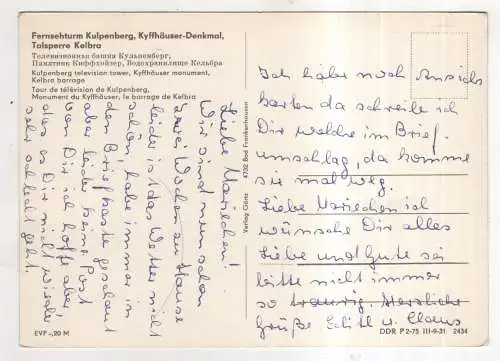 Fernsehturm Kulpenberg, Kyffhäuser-Denkmal,
Talsperre Kelbra
Телевизионная башня Кульпенберг,
Памятник Киффхойзер, Водохранилище Кельбра
Kulpenberg television tower, Kyffhäuser monument,
Kelbra barrage
Tour de télévision de Kulpenberg,
Monument du Kyffhäuser, le barrage de Kelbra
Liebe Mariechen!
Wir sind nun schon
zwei Wochen zu Hause
leider ist das Wetter nicht
schön, habe immer in
den Briefkasten geschaut
aber leider keine Post
von Dir ich hoffe aber
das es Dir nicht wieder
sehr schlecht geht.
EVP -,20 M
Verlag Görtz 4732 Bad Frankenhausen
Ich habe noch Ansichts
karten da schreibe ich
Dir welche im Brief.
umschlag, da komme
sie mal weg.
Liebe Mariechen ich
wünsche Dir alles
Liebe und Gute sei
bitte nicht immer
so traurig. Herzliche
Grüße Edith u. Claus
DDR P 2-75 III-9-31 2434